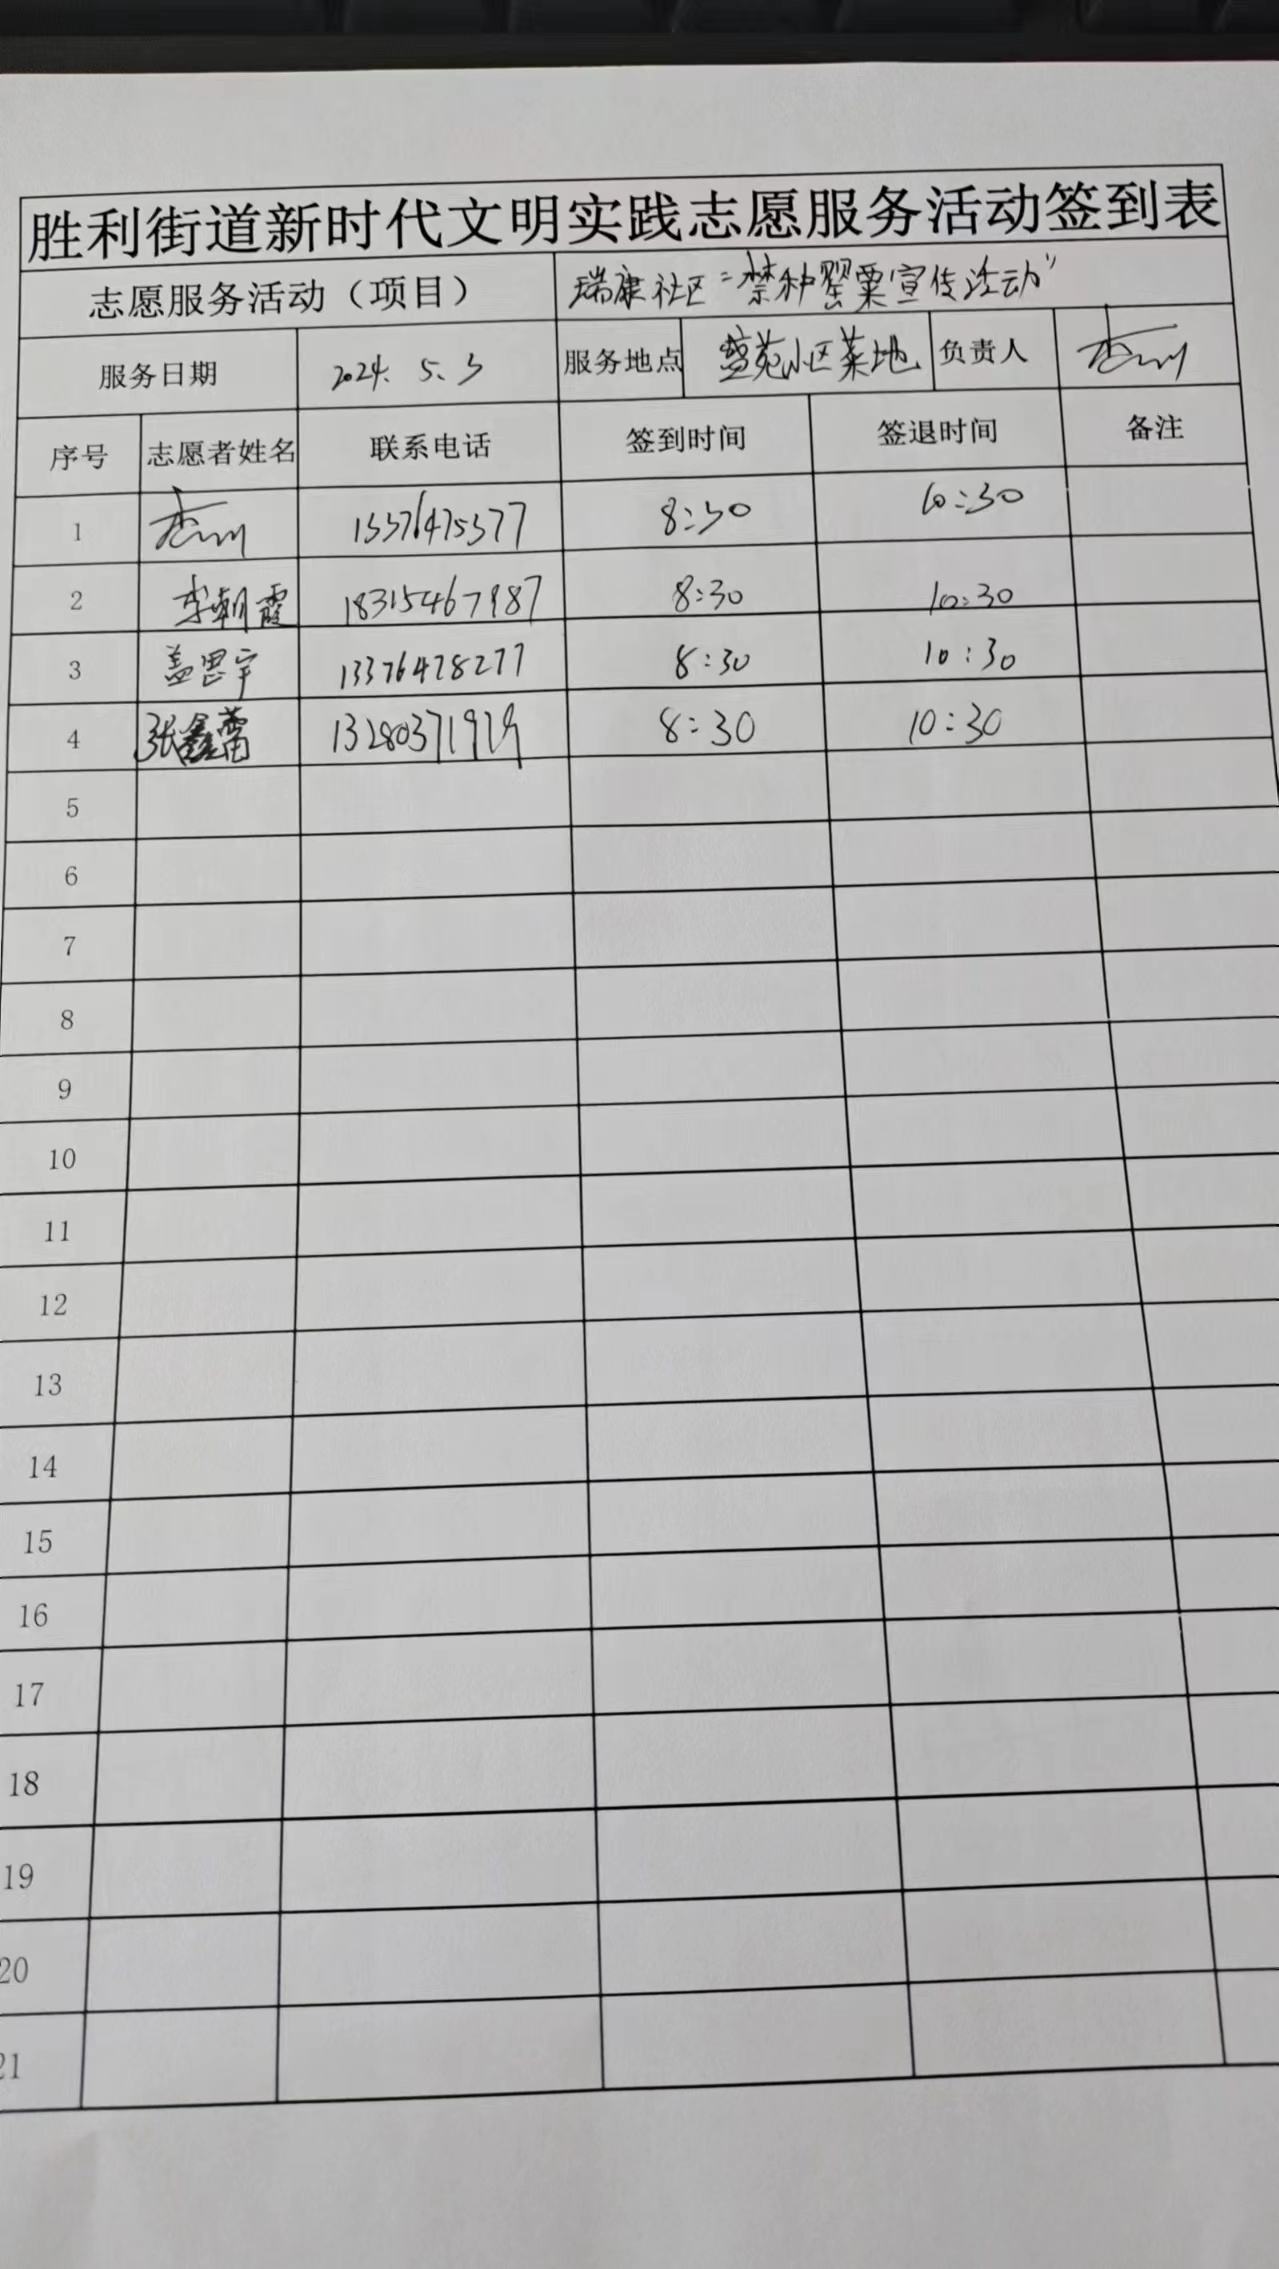 胜利街道新时代文明实践志愿服务活动签到表
志愿服务活动（项目） 瑞康社区“禁种罂粟宣传活动”
服务日期 2024. 5. 3 服务地点 盛苑小区菜地 负责人
序号 志愿者姓名 联系电话 签到时间 签退时间 备注
1 13376475377 8:30 10:30
2 李朝霞 18315467987 8:30 10:30
3 盖思宇 13376478277 8:30 10:30
4 张鑫蕾 13280371929 8:30 10:30
5
6
7
8
9
10
11
12
13
14
15
16
17
18
19
20
21